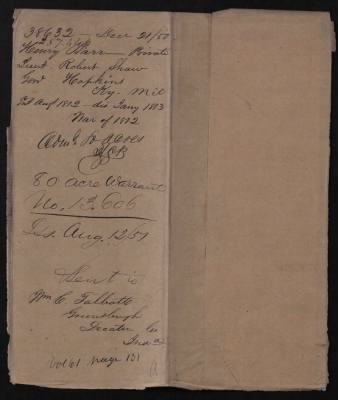 38632 - Decr 21/50
Henry Warr - Private
Lieut. Robert Shaw
Govr Hopkins
Ky. Mil
Aug 1812 - dis Jany 1813
War of 1812
80 acre Warrant
No. 13.606
Iss. Aug. 12/51
Sent to
Wm C. Talbott
Greensburgh
Decatur Co
Inda
Vol 61 page 131